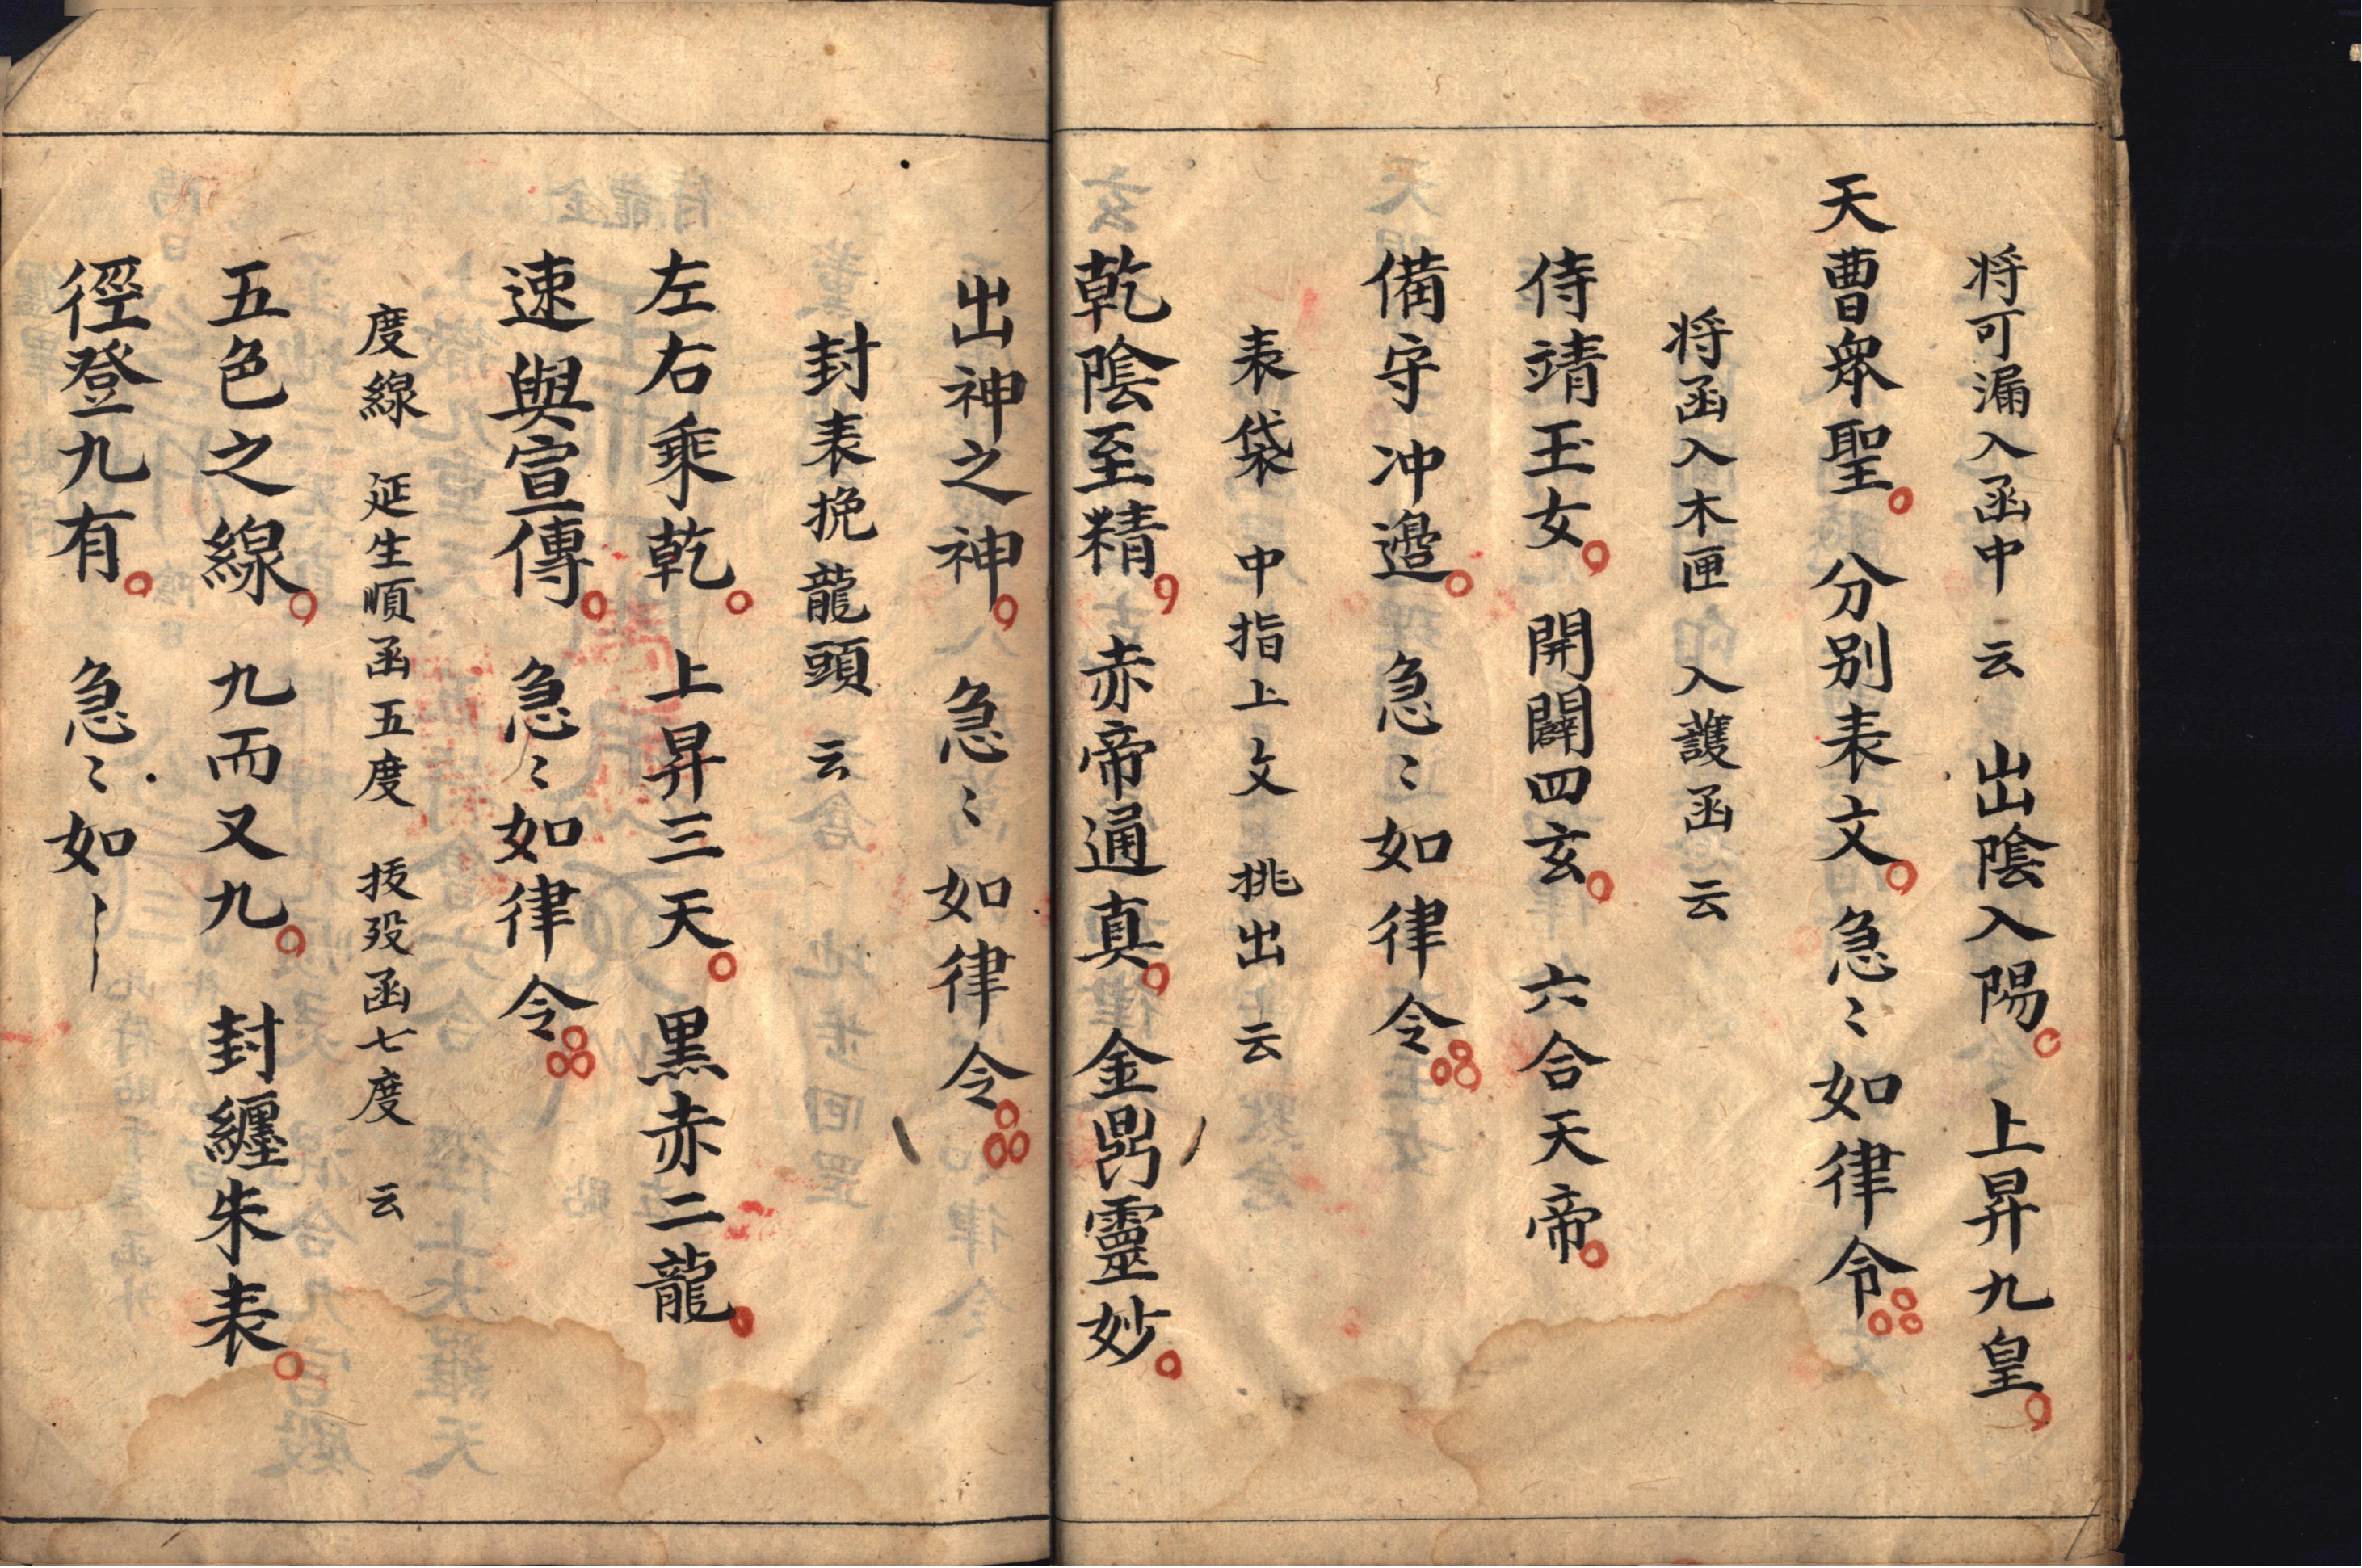 将可漏入函中 云 出陰入陽。 上昇九皇。
天曹眾聖。 分别表文。急〻如律令
将函入木匣 入護函 云
侍靖玉女。 開闢四玄。 六合天帝。
備守冲邉。 急〻如律令
表袋 中指上文 挑出 云
乾陰至精。 赤帝通真。 金鼎靈妙。
出神之神。 急〻如律令
封表挽龍頭 云
左右乘乾。 上昇三天。 黒赤二龍。
速與宣傳。 急〻如律令
度線 延生順函五度 拔殁函七度 云
五色之線。 九而又九。 封纏朱表。
徑登九有。 急〻如